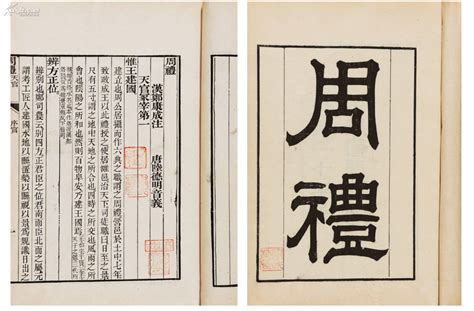 周禮
周禮
漢鄭康成注　唐陸德明音義
天官冢宰第一
惟王建國
建立也周公居攝而作六典之職謂之周禮營邑於土中七年
致政成王以此禮授之使居雒邑治天下司徒職曰日至之景
尺有五寸謂之地中天地之所合也四時之所交也風雨之所
會也陰陽之所和也然則百物阜安乃建王國焉
辨方正位
辨別也鄭司農云別四方正君臣之位君南面臣北面之屬玄
謂考工匠人建國水地以縣置槷以縣眡以景爲規識日出之
周禮 天官 序官 一